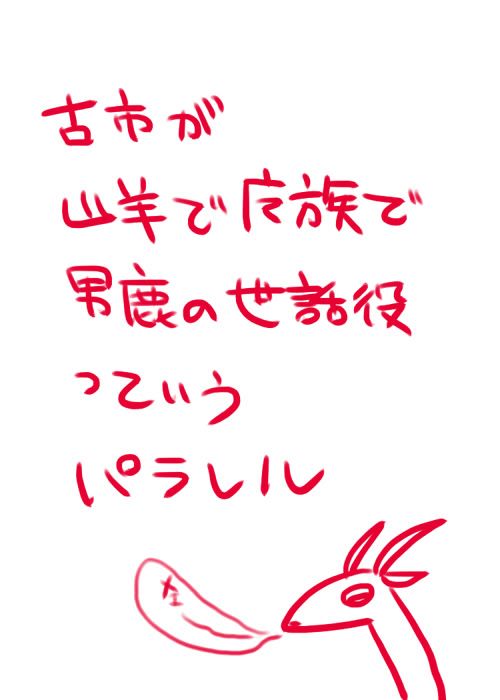 古市が
山羊で皮族で
男鹿の世話役
っていう
パラレル